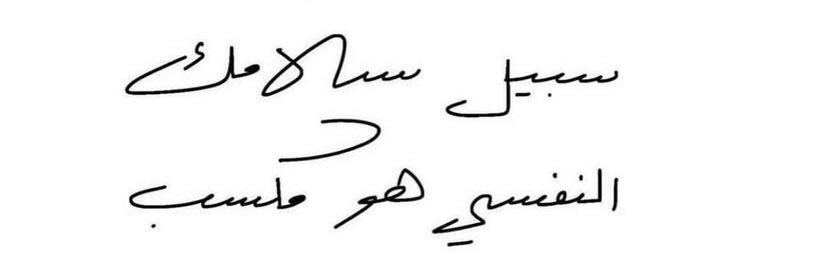 سبيل سلامك
النفسي هو مكسب